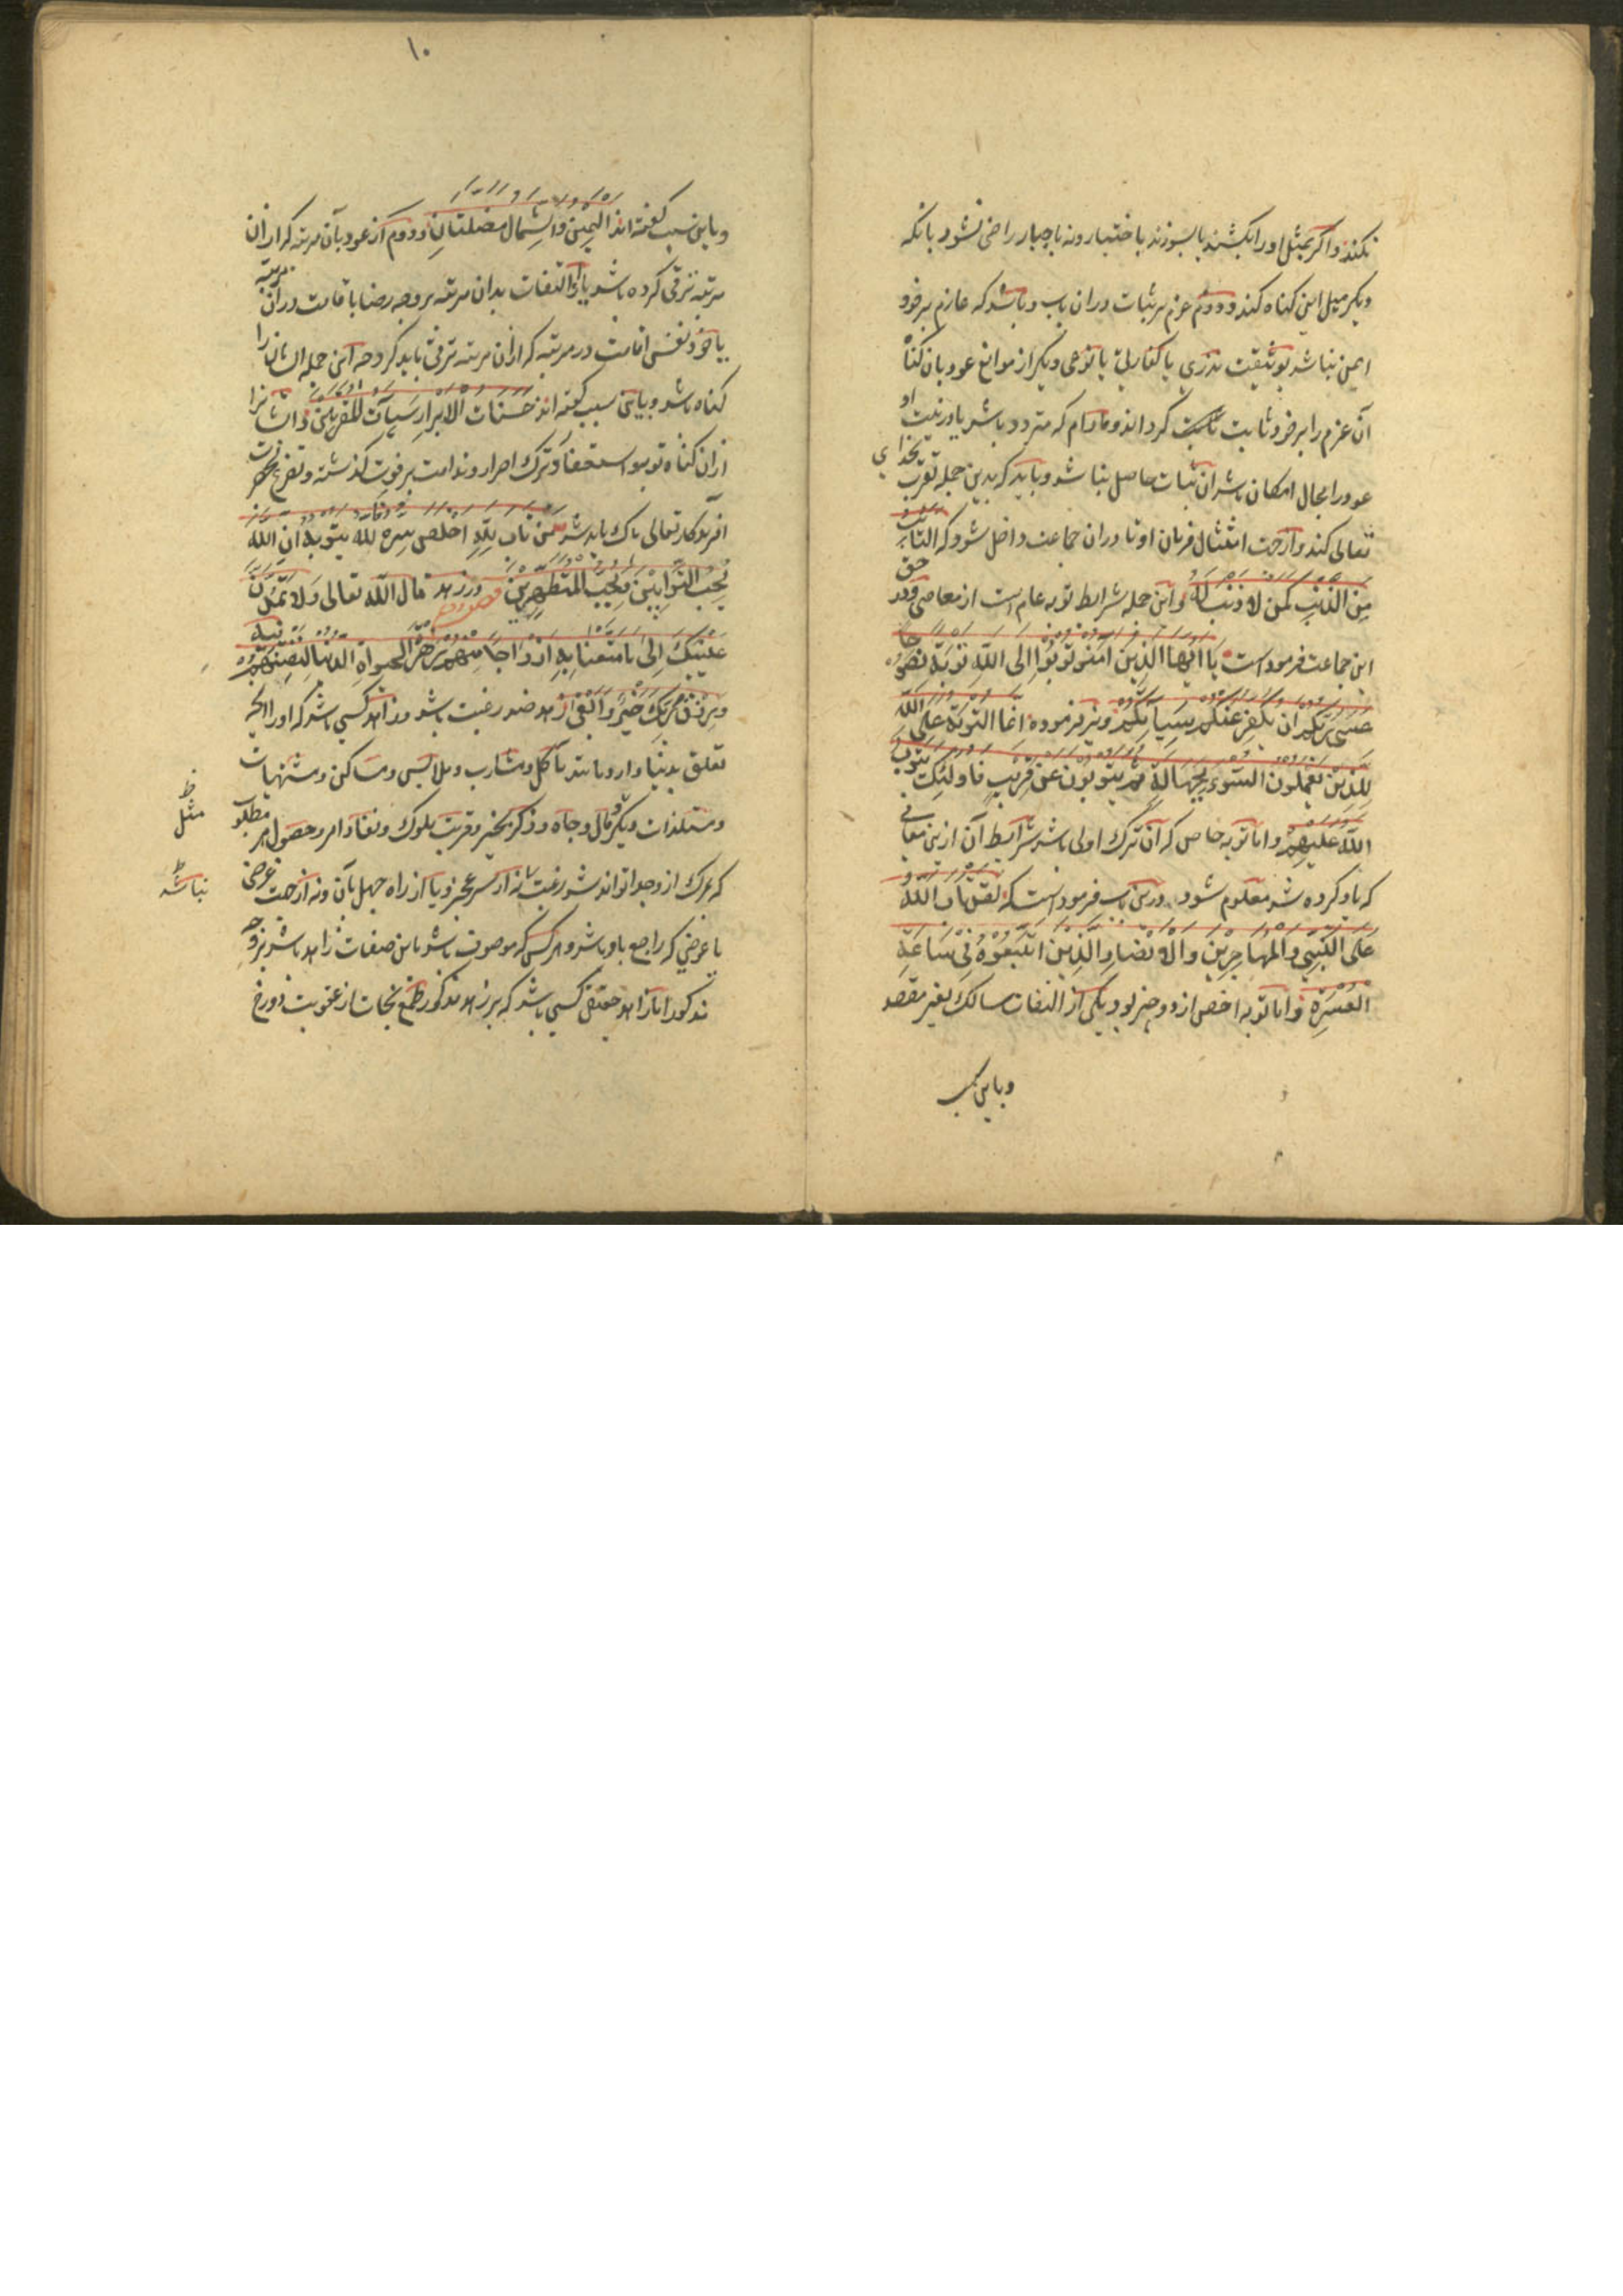 نکند و اگر بمثل او را بکشند یا بسوزند باختیار و نه باجبار راضی نشود بانکه
دیگر میل این گناه کند و دوم عزم بر ثبات دران باب و باشد که عازم بر خود
ایمن نباشد بوثیقت نذری یا کفارتی یا نوعی دیگر از موانع عود بان گناه
آن عزم را بر خود ثابت گرداند و مادام که متردد باشد یا در نیت او
عود را مجال امکان باشد آن ثبات حاصل نباشد و باید که بدین جمله تقرب بخدای
تعالی کند و از جهت امتثال فرمان او تا دران جماعت داخل شود که التائب
من الذنب کمن لا ذنب له و این جمله شرایط توبه عام است از معاصی و در حق
این جماعت فرموده است یا ایها الذین آمنو توبوا الی الله توبة نصوحا
عسی ربکم ان یکفر عنکم سیأتکم و نیز فرموده انما التوبة علی الله
للذین یعملون السوء بجهالة ثم یتوبون عن قریب فاولئک یتوب
الله علیهم و اما توبه خاص که آن ترک اولی باشد شرایط آن ازین معانی
که یاد کرده شد معلوم شود و درین باب فرموده است که لقد تاب الله
علی النبی و المهاجرین و الانصار و الذین اتبعوه فی ساعة
العسرة و اما توبه اخص از دو چیز بود یکی از التفات سالک بغیر مقصد
و باین سبب
۱۰
و باین سبب گفته اند الیمین و الشمال مضلتان و دوم از عود بآن مرتبه که ازان
مرتبه ترقی کرده باشد یا از التفات بدان مرتبه بر وجه رضا باقامت دران مرتبه
یا خود نفس اقامت در مرتبه که ازان مرتبه ترقی باید کرد چه این جمله ایشان را
گناه باشد و باین سبب گفته اند حسنات الابرار سیآت المقربین و ایشانرا
ازان گناه توبه و استغفار و ترک اصرار و ندامت بر فوت گذشته و تضرع بحضرت
آفریدگار تعالی پاک باید شد من تاب لله اخلص سره لله یتوبه ان الله
یحب التوابین و یحب المتطهرین در زهد قال الله تعالی و لا تمدن
عینیک الی ما متعنا به ازواجا منهم زهرة الحیوة الدنیا لنفتنهم فیه
و رزق ربک خیر و ابقی زهد ضد رغبت باشد و زاهد کسی باشد که او را بآنچه
تعلق بدنیا دارد مانند مآکل و مشارب و ملابس و مساکن و مشتهیات
و مستلذات دیگر و مال و جاه و ذکر بخیر و قربت ملوک و نفاذ امر و حصول هر مطلوب
که بمرگ از وجدا تواند شد رغبت نه از سر عجز و یا از راه جهل بآن و نه از جهت غرضی
یا عوضی که راجع باو باشد و هر کس که موصوف باشد باین صفات زاهد باشد بر وجه
مذکور اما زاهد حقیقی کسی باشد که بر زهد مذکور طمع نجات از عقوبت دوزخ
ظ
مثل
ظ
نباشد